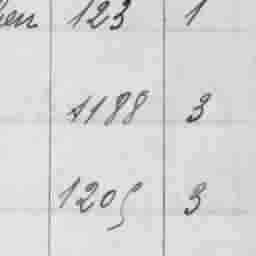 en 123 1
1188 3
1205 3